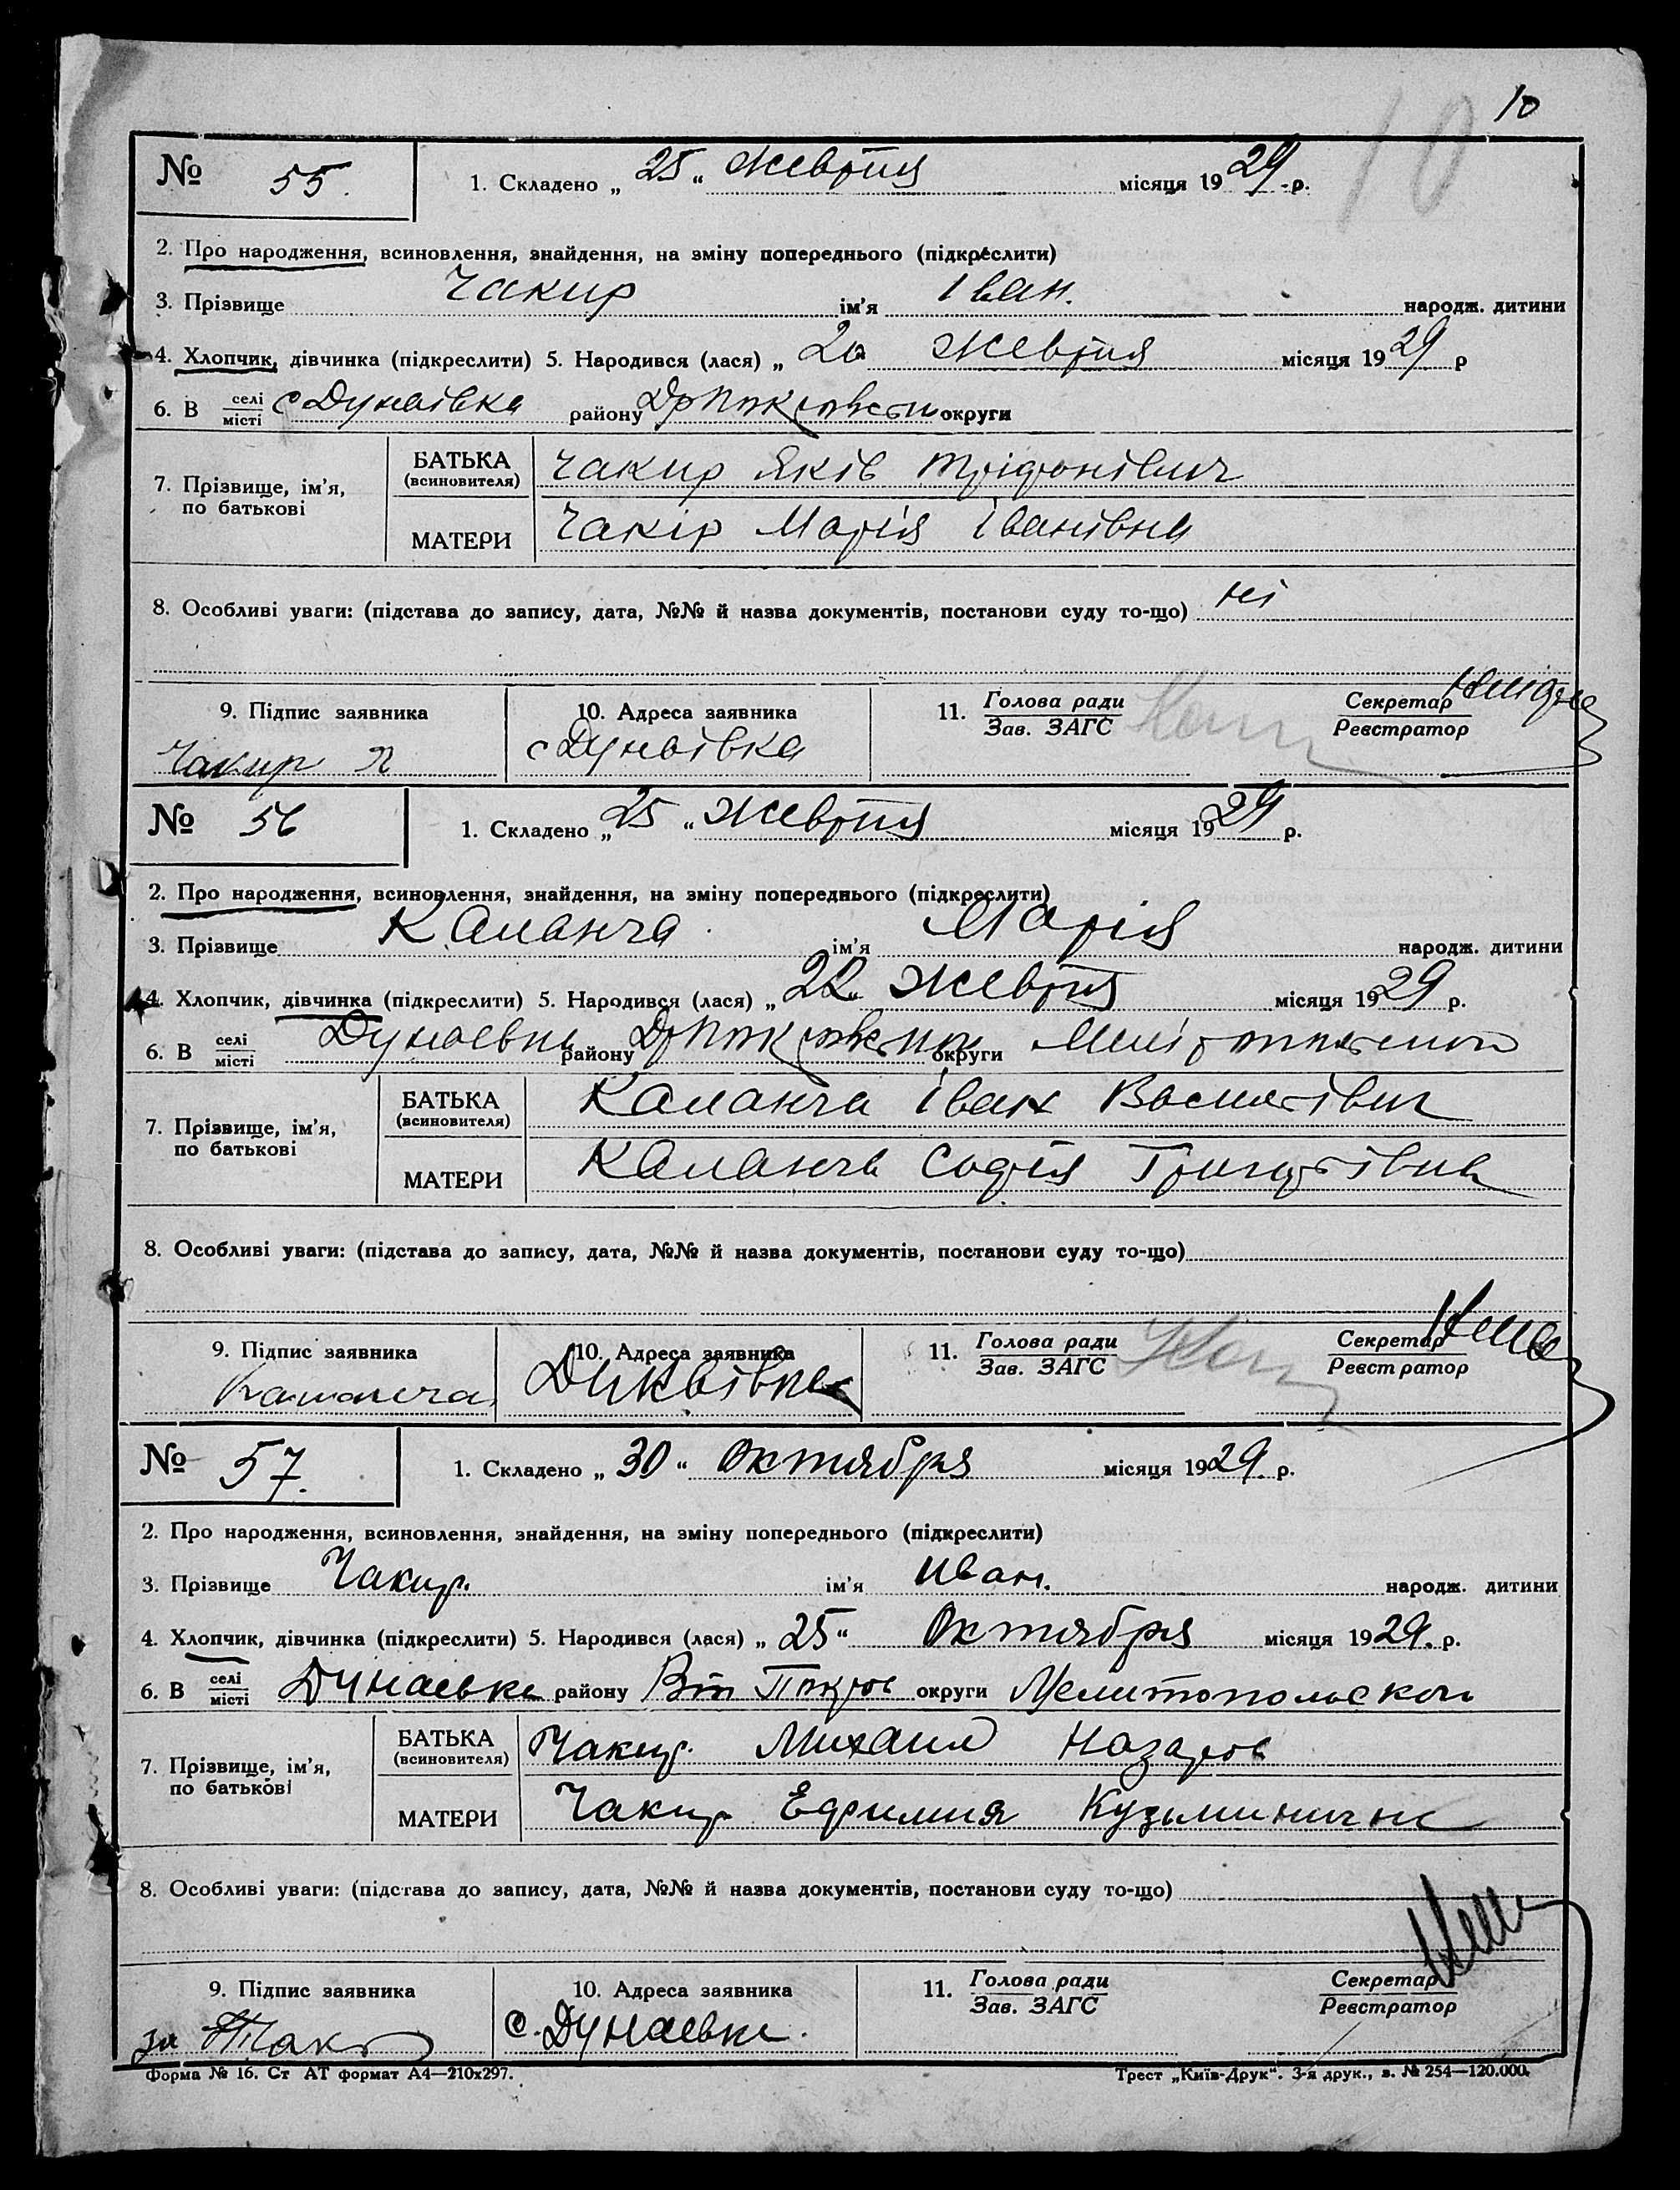 10
10
№ 55. 1. Складено „ 25 “ Жевтня місяця 19 29 р.
2. Про народження, всиновлення, знайдення, на зміну попереднього (підкреслити)
3. Прізвище Чакир ім'я Іван. народж. дитини
4. Хлопчик, дівчинка (підкреслити) 5. Народився (лася) „ 20 Жевтня місяця 19 29 р
6. В селі місті с Дунаівка району округи
7. Прізвище, ім'я, по батькові
БАТЬКА (всиновителя) Чакир Яків Тріфонівич
МАТЕРИ Чакір Марія Іванівна
8. Особливі уваги: (підстава до запису, дата, №№ й назва документів, постанови суду то-що) ні
9. Підпис заявника 10. Адреса заявника 11. Голова ради Зав. ЗАГС Секретар Реєстратор
Чакир Я с Дунаівка
№ 56 1. Складено „ 25 “ Жевтня місяця 19 29 р.
2. Про народження, всиновлення, знайдення, на зміну попереднього (підкреслити)
3. Прізвище Каланча ім'я Марія народж. дитини
4. Хлопчик, дівчинка (підкреслити) 5. Народився (лася) „ 22 “ Жевтня місяця 19 29 р.
6. В селі місті Дунаевка району округи
7. Прізвище, ім'я, по батькові
БАТЬКА (всиновителя) Каланча Іван Василівич
МАТЕРИ Каланча Софія Григорівна
8. Особливі уваги: (підстава до запису, дата, №№ й назва документів, постанови суду то-що)
9. Підпис заявника 10. Адреса заявника 11. Голова ради Зав. ЗАГС Секретар Реєстратор
Каланча
№ 57. 1. Складено „ 30 “ Октября місяця 19 29. р.
2. Про народження, всиновлення, знайдення, на зміну попереднього (підкреслити)
3. Прізвище Чакир. ім'я Иван. народж. дитини
4. Хлопчик, дівчинка (підкреслити) 5. Народився (лася) „ 25 “ Октября місяця 19 29. р.
6. В селі місті Дунаевке району Вт Покров округи Мелитопольской
7. Прізвище, ім'я, по батькові
БАТЬКА (всиновителя) Чакир. Михаил Назаров
МАТЕРИ Чакир Ефимия Кузьминична
8. Особливі уваги: (підстава до запису, дата, №№ й назва документів, постанови суду то-що)
9. Підпис заявника 10. Адреса заявника 11. Голова ради Зав. ЗАГС Секретар Реєстратор
за с. Дунаевке.
Форма № 16. Ст АТ формат А4—210х297. Трест „Київ-Друк“. 3-я друк., з. № 254—120.000.